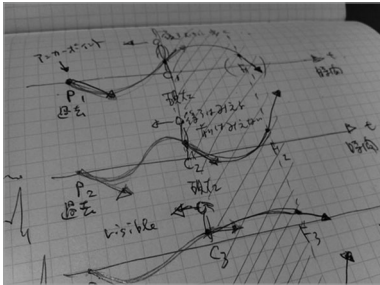 アンカーポイント
P1
過去
C1
現在
t
時間
後ろはみえよ
前はみえない
P2
過去
C2
現在
F2
t
時間
visible
C3
F3